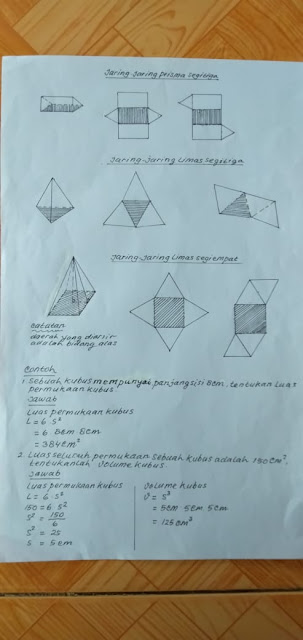 Jaring-Jaring Prisma segitiga
Jaring-Jaring Limas segitiga
Jaring-Jaring Limas segiempat
Catatan
daerah yang diarsir
adalah bidang alas
Contoh
1. Sebuah kubus mempunyai panjang sisi 8cm. tentukan luas
permukaan kubus
Jawab
Luas permukaan kubus
L = 6 . s²
= 6 8cm 8cm
= 384cm²
2. Luas seluruh permukaan sebuah kubus adalah 150cm²,
tentukanlah volume kubus.
Jawab
Luas permukaan kubus
L = 6 . s²
150 = 6 s²
s² = 150/6
s² = 25
s = 5cm
Volume kubus
V = s³
= 5cm 5cm 5cm
= 125cm³